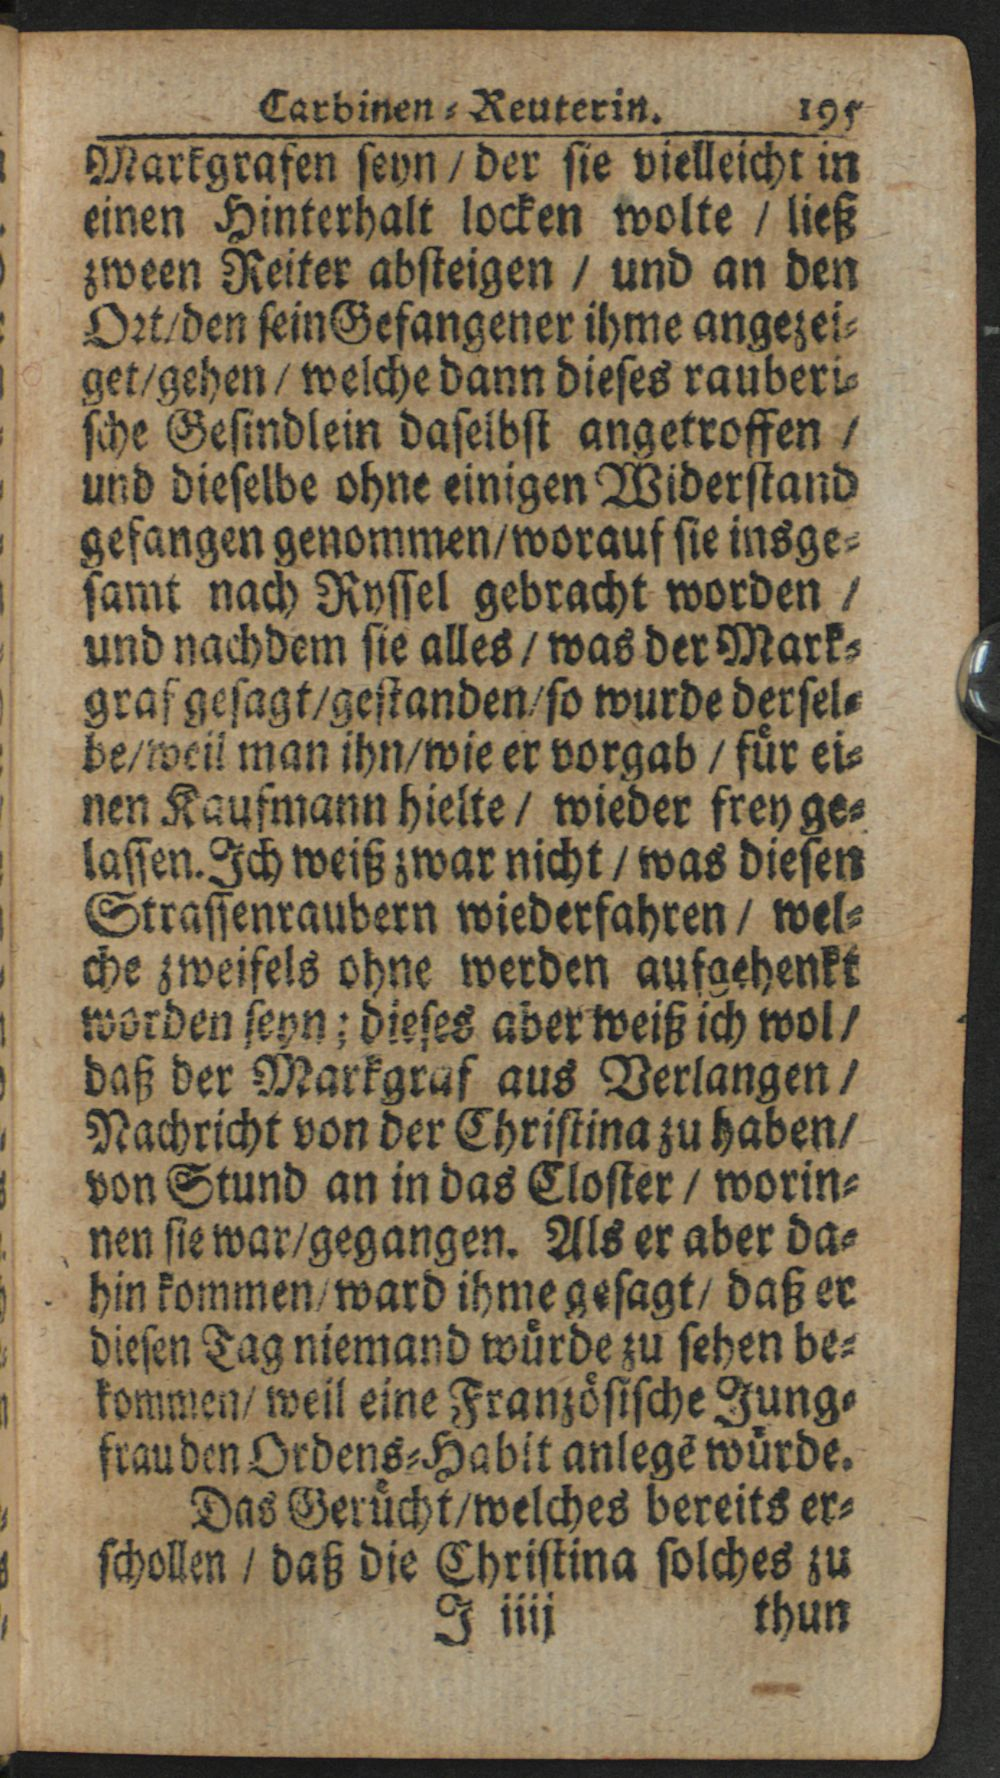 Carbinen-Reuterin. 195
Markgrafen seyn / der sie vielleicht in
einen Hinterhalt locken wolte / ließ
zween Reiter absteigen / und an den
Ort/den sein Gefangener ihme angezei-
get/gehen / welche dann dieses rauberi-
sche Gesindlein daselbst angetroffen /
und dieselbe ohne einigen Widerstand
gefangen genommen/worauf sie insge-
samt nach Ryssel gebracht worden /
und nachdem sie alles / was der Mark-
graf gesagt/gestanden/so wurde dersel-
be/weil man ihn/wie er vorgab / für ei-
nen Kaufmann hielte / wieder frey ge-
lassen. Ich weiß zwar nicht / was diesen
Strassenraubern wiederfahren / wel-
che zweifels ohne werden aufgehenkt
worden seyn; dieses aber weiß ich wol/
daß der Markgraf aus Verlangen /
Nachricht von der Christina zu haben/
von Stund an in das Closter / worin-
nen sie war/gegangen. Als er aber da-
hin kommen/ward ihme gesagt/ daß er
diesen Tag niemand würde zu sehen be-
kommen/ weil eine Französische Jung-
frau den Ordens-Habit anlegē würde.
Das Gerücht/welches bereits er-
schollen / daß die Christina solches zu
J iiij thun